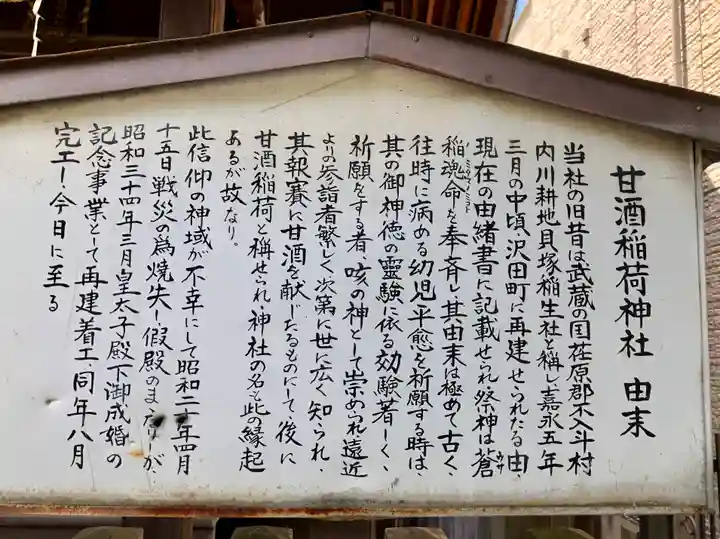 甘酒稲荷神社 由末
当社の旧昔は武蔵の国荏原郡不入斗村
内川耕地貝塚稲生社と称し嘉永五年
三月の中頃、沢田町に再建せられたる由、
現在の由緒書に記載せられ祭神は蒼
稲魂命を奉斉し其由末は極めて古く、
往時に病める幼児平愈を祈願する時は、
其の御神徳の靈験に依る効験著しく、
祈願をする者、咳の神として崇められ遠近
よりの参詣者繁しく次第に世に広く知られ、
其報賽に甘酒を献じたるものにして、後に
甘酒稲荷と称せられ神社の名も此の縁起
あるが故なり。
此信仰の神域が不幸にして昭和二十年四月
十五日戦災の為焼失し假殿のま
昭和三十四年三月皇太子殿下御成婚の
記念事業として再建着工、同年八月
完工し今日に至る